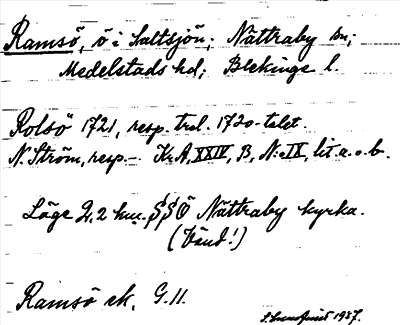 Ramsö, ö i Saltsjön; Nättraby sn;
Medelstads hd; Blekinge l.
Rolsö 1721, resp. trol. 1720-talet.
N. Ström, resp. – Kr. A, XXIV, B, N:o IX, lit a. o. b.
Läge 2,2 km. SSÖ Nättraby kyrka.
(Vänd!)
Ramsö ek. G. 11.
1937.